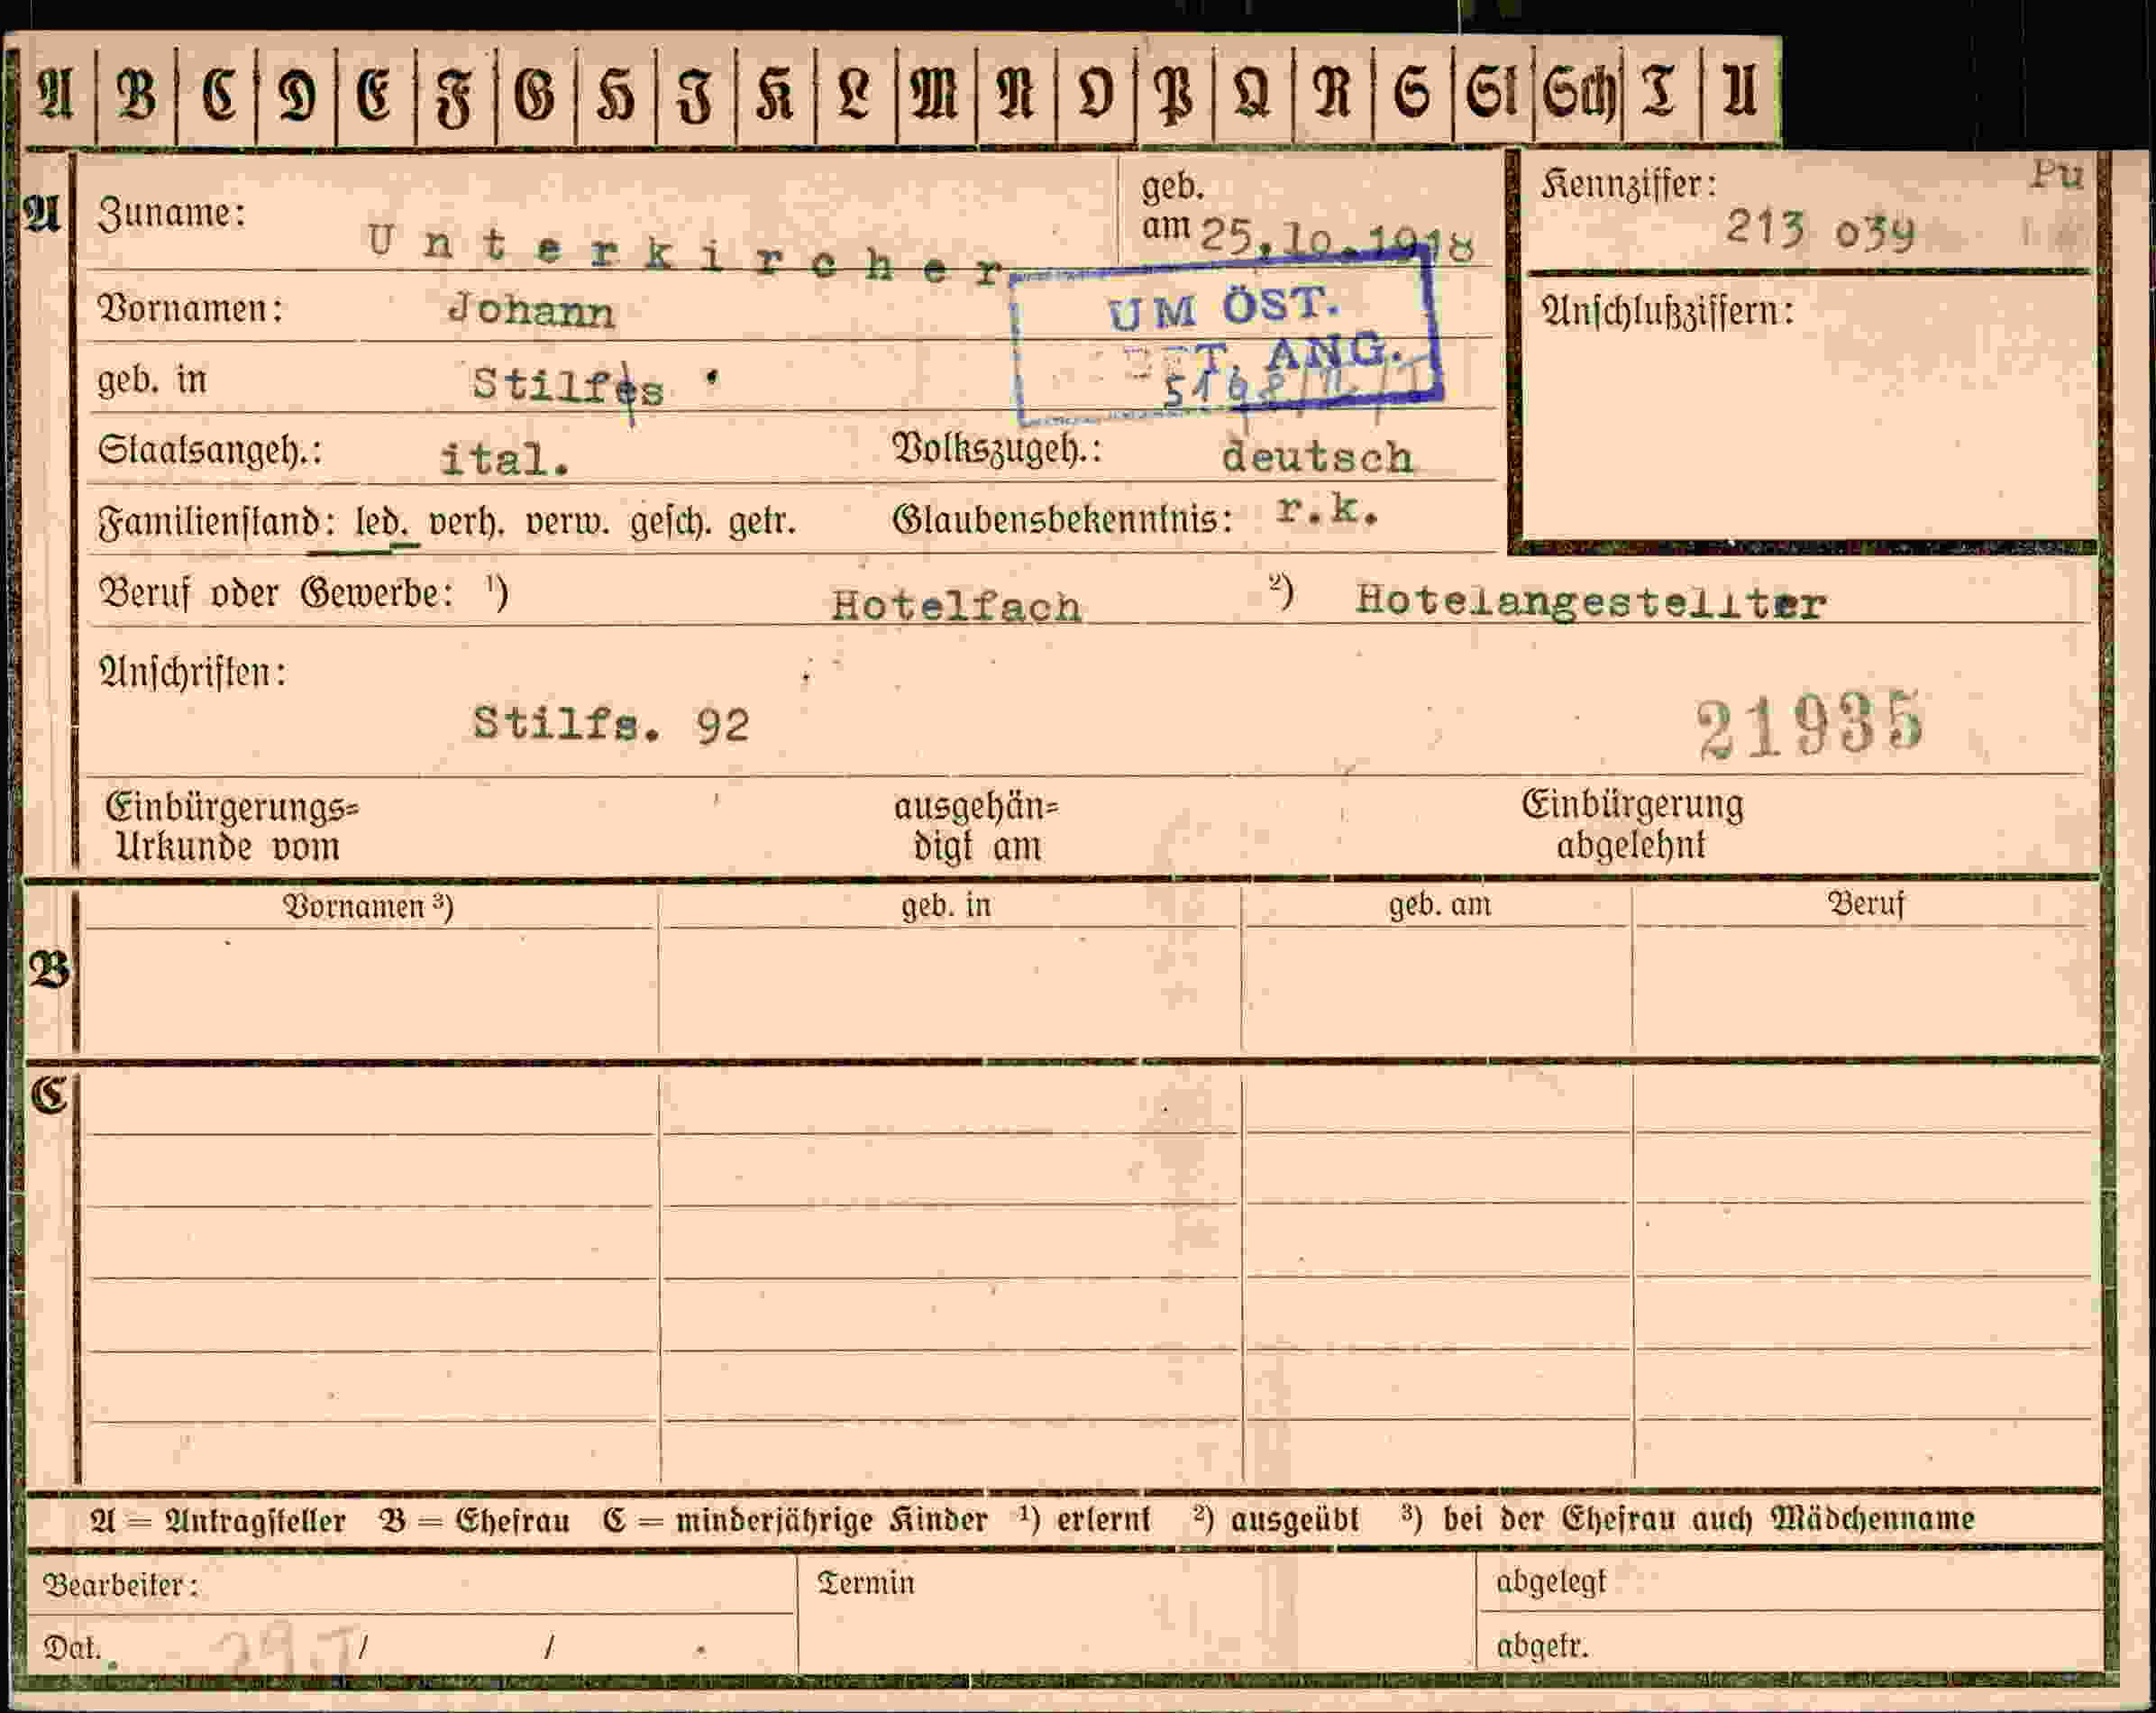 A B C D E F G H I K L M N O P Q R S St Sch T U
A Zuname: Unterkircher geb. am 25.10.1918 Kennziffer: 213 039 Pu
UM ÖST.
T. ANG.
Vornamen: Johann Anschlußziffern:
geb. in Stilfs
Staatsangeh.: ital. Volkszugeh.: deutsch
Familienstand: led. verh. verw. gesch. getr. Glaubensbekenntnis: r.k.
Beruf oder Gewerbe: 1) Hotelfach 2) Hotelangestellter
Anschriften:
Stilfs. 92 21935
Einbürgerungs= ausgehän= Einbürgerung
Urkunde vom digt am abgelehnt
Vornamen 3) geb. in geb. am Beruf
B
C
A = Antragsteller B = Ehefrau C = minderjährige Kinder 1) erlernt 2) ausgeübt 3) bei der Ehefrau auch Mädchenname
Bearbeiter: Termin abgelegt
Dat. / / abgetr.